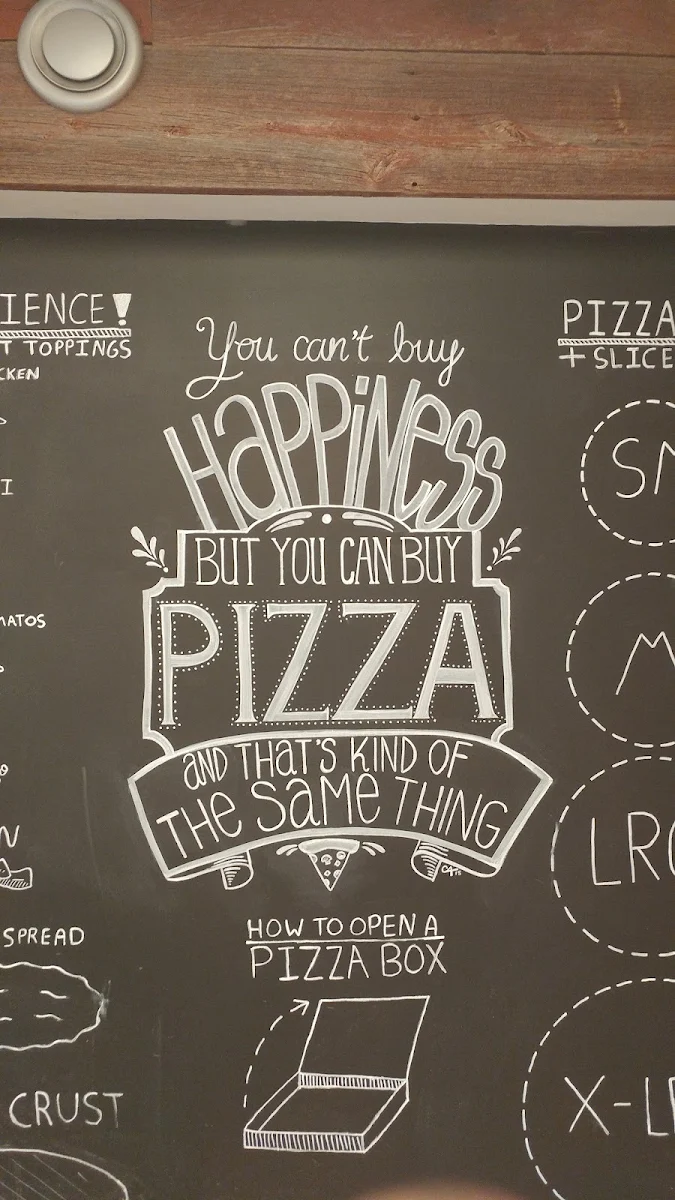 IENCE!
T TOPPINGS
CKEN
I
MATOS
N
SPREAD
CRUST
You can't buy
HaPPiNeSS
BUT YOU CAN BUY
PIZZA
aND THaT'S KIND OF
THe SaMe THING
HOW TO OPEN A
PIZZA BOX
PIZZA
+ SLICE
SM
M
LRG
X-LR